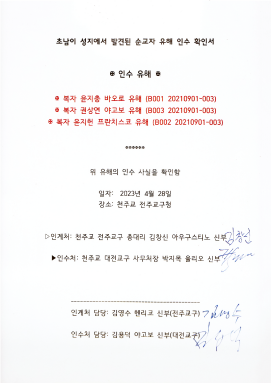 초남이 성지에서 발견된 순교자 유해 인수 확인서
※ 인수 유해 ※
※ 복자 윤지충 바오로 유해 (B001 20210901-003)
※ 복자 권상연 야고보 유해 (B003 20210901-003)
※ 복자 윤지헌 프란치스코 유해 (B002 20210901-003)
******
위 유해의 인수 사실을 확인함
일자: 2023년 4월 28일
장소: 천주교 전주교구청
▷인계처: 천주교 전주교구 총대리 김창신 아우구스티노 신부
▶인수처: 천주교 대전교구 사무처장 박지목 율리오 신부
인계처 담당: 김영수 헨리코 신부(전주교구)
인수처 담당: 김용덕 야고보 신부(대전교구)